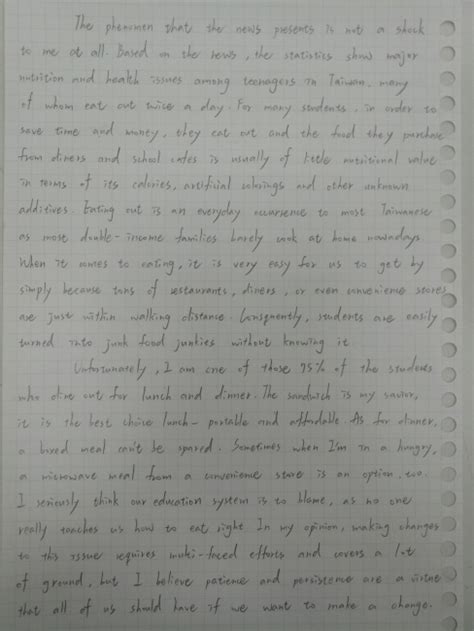 The phenomen that the news presents is not a shock
to me at all. Based on the news, the statistics show major
nutrition and health issues among teenagers in Taiwan, many
of whom eat out twice a day. For many students, in order to
save time and money, they eat out and the food they purchase
from diners and school cafes is usually of little nutritional value
in terms of its calories, artificial colorings and other unknown
additives. Eating out is an everyday occurrence to most Taiwanese
as most double-income families barely cook at home nowadays
When it comes to eating, it is very easy for us to get by
simply because tons of restaurants, diners, or even convenience stores
are just within walking distance. Consquently, students are easily
turned into junk food junkies without knowing it.
Unfortunately, I am one of those 75% of the students
who dine out for lunch and dinner. The sandwich is my savior,
it is the best choice lunch - portable and affordable. As for dinner,
a boxed meal can't be spared. Sometimes when I'm in a hungry,
a microwave meal from a convenience store is an option, too.
I seriously think our education system is to blame, as no one
really teaches us how to eat right. In my opinion, making changes
to this issue requires multi-faced efforts and covers a lot
of ground, but I believe patience and persistence are a virtue
that all of us should have if we want to make a change.